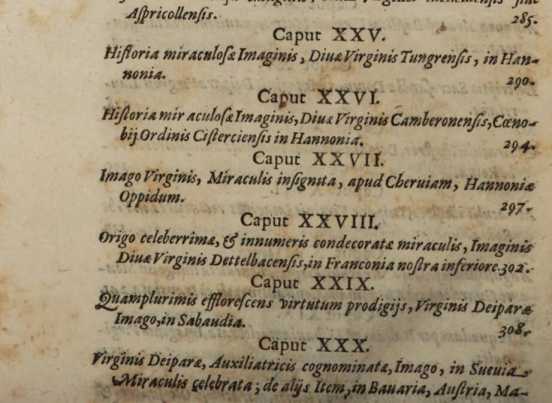 Aſpricollenſis. 285.
Caput XXV.
Hiſtoria miraculoſæ Imaginis, Divæ Virginis Tungrenſis, in Han-
nonia. 290.
Caput XXVI.
Hiſtoria mir aculoſæ Imaginis, Divæ Virginis Camberonenſis, Cœno-
bij Ordinis Ciſtercienſis in Hannonia. 294.
Caput XXVII.
Imago Virginis, Miraculis inſignita, apud Cherviam, Hannoniæ
Oppidum. 297.
Caput XXVIII.
Origo celeberrimæ, & innumeris condecoratæ miraculis, Imaginis
Divæ Virginis Dettelbacenſis, in Franconia noſtra inferiore. 302.
Caput XXIX.
Quamplurimis effloreſcens virtutum prodigijs, Virginis Deiparæ
Imago, in Sabaudia. 308.
Caput XXX.
Virginis Deiparæ, Auxiliatricis cognominatæ, Imago, in Suevia
Miraculis celebrata; de alijs Item, in Bavaria, Auſtria, Ma-